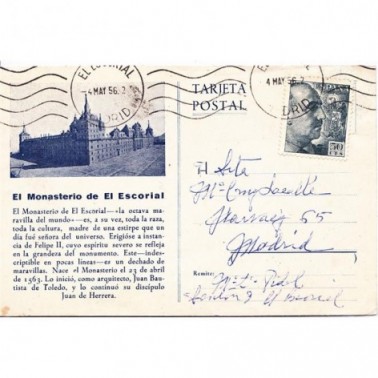 EL ESCORIAL
4 MAY 56. 2
MADRID
EL ESCORIAL
4 MAY 56. 2
MADRID
TARJETA
POSTAL
ESPAÑA
50
CTS
El Monasterio de El Escorial
El Monasterio de El Escorial—«la octava ma-
ravilla del mundo»—es, a su vez, toda la raza,
toda la cultura, madre de una estirpe que un
día fué señora del universo. Erigióse a instan-
cia de Felipe II, cuyo espíritu severo se refleja
en la grandeza del monumento. Este—indes-
criptible en pocas líneas—es un dechado de
maravillas. Nace el Monasterio el 23 de abril
de 1563. Lo inició, como arquitecto, Juan Bau-
tista de Toledo, y lo continuó su discípulo
Juan de Herrera.
Srta
Mª Cruz
Narvaez 55
Madrid
Remite: Mª Vidal
El Escorial